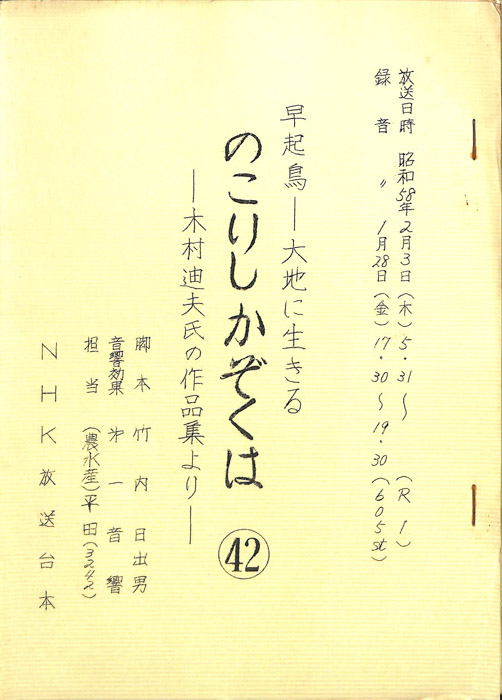 放送日時 昭和58年2月3日(木)5.31〜 (R1)
録音 〃 1月28日(金)17.30〜19.30(605st)
早起鳥―大地に生きる
のこりしかぞくは ㊷
―木村迪夫氏の作品集より―
脚本 竹内日出男
音響効果 才一音響
担当 (農水産)平田(3242)
NHK放送台本